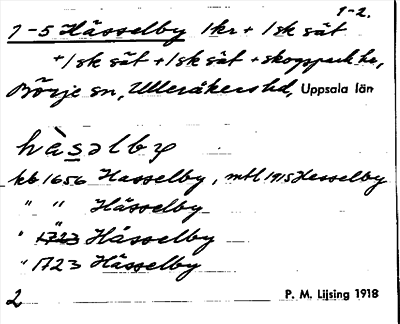 1-2.
1-5 Hässelby 1kr + 1 sk sät
+ 1 sk sät + 1 sk sät + skogspark he,
Börje sn, Ulleråkers hd, Uppsala län
hà̀səlby
kb 1656 Hasselby, mtl 1915 Hesselby
" " Hässelby
" 1723 Hässelby
" 1723 Hässelby
2 P. M. Lijsing 1918